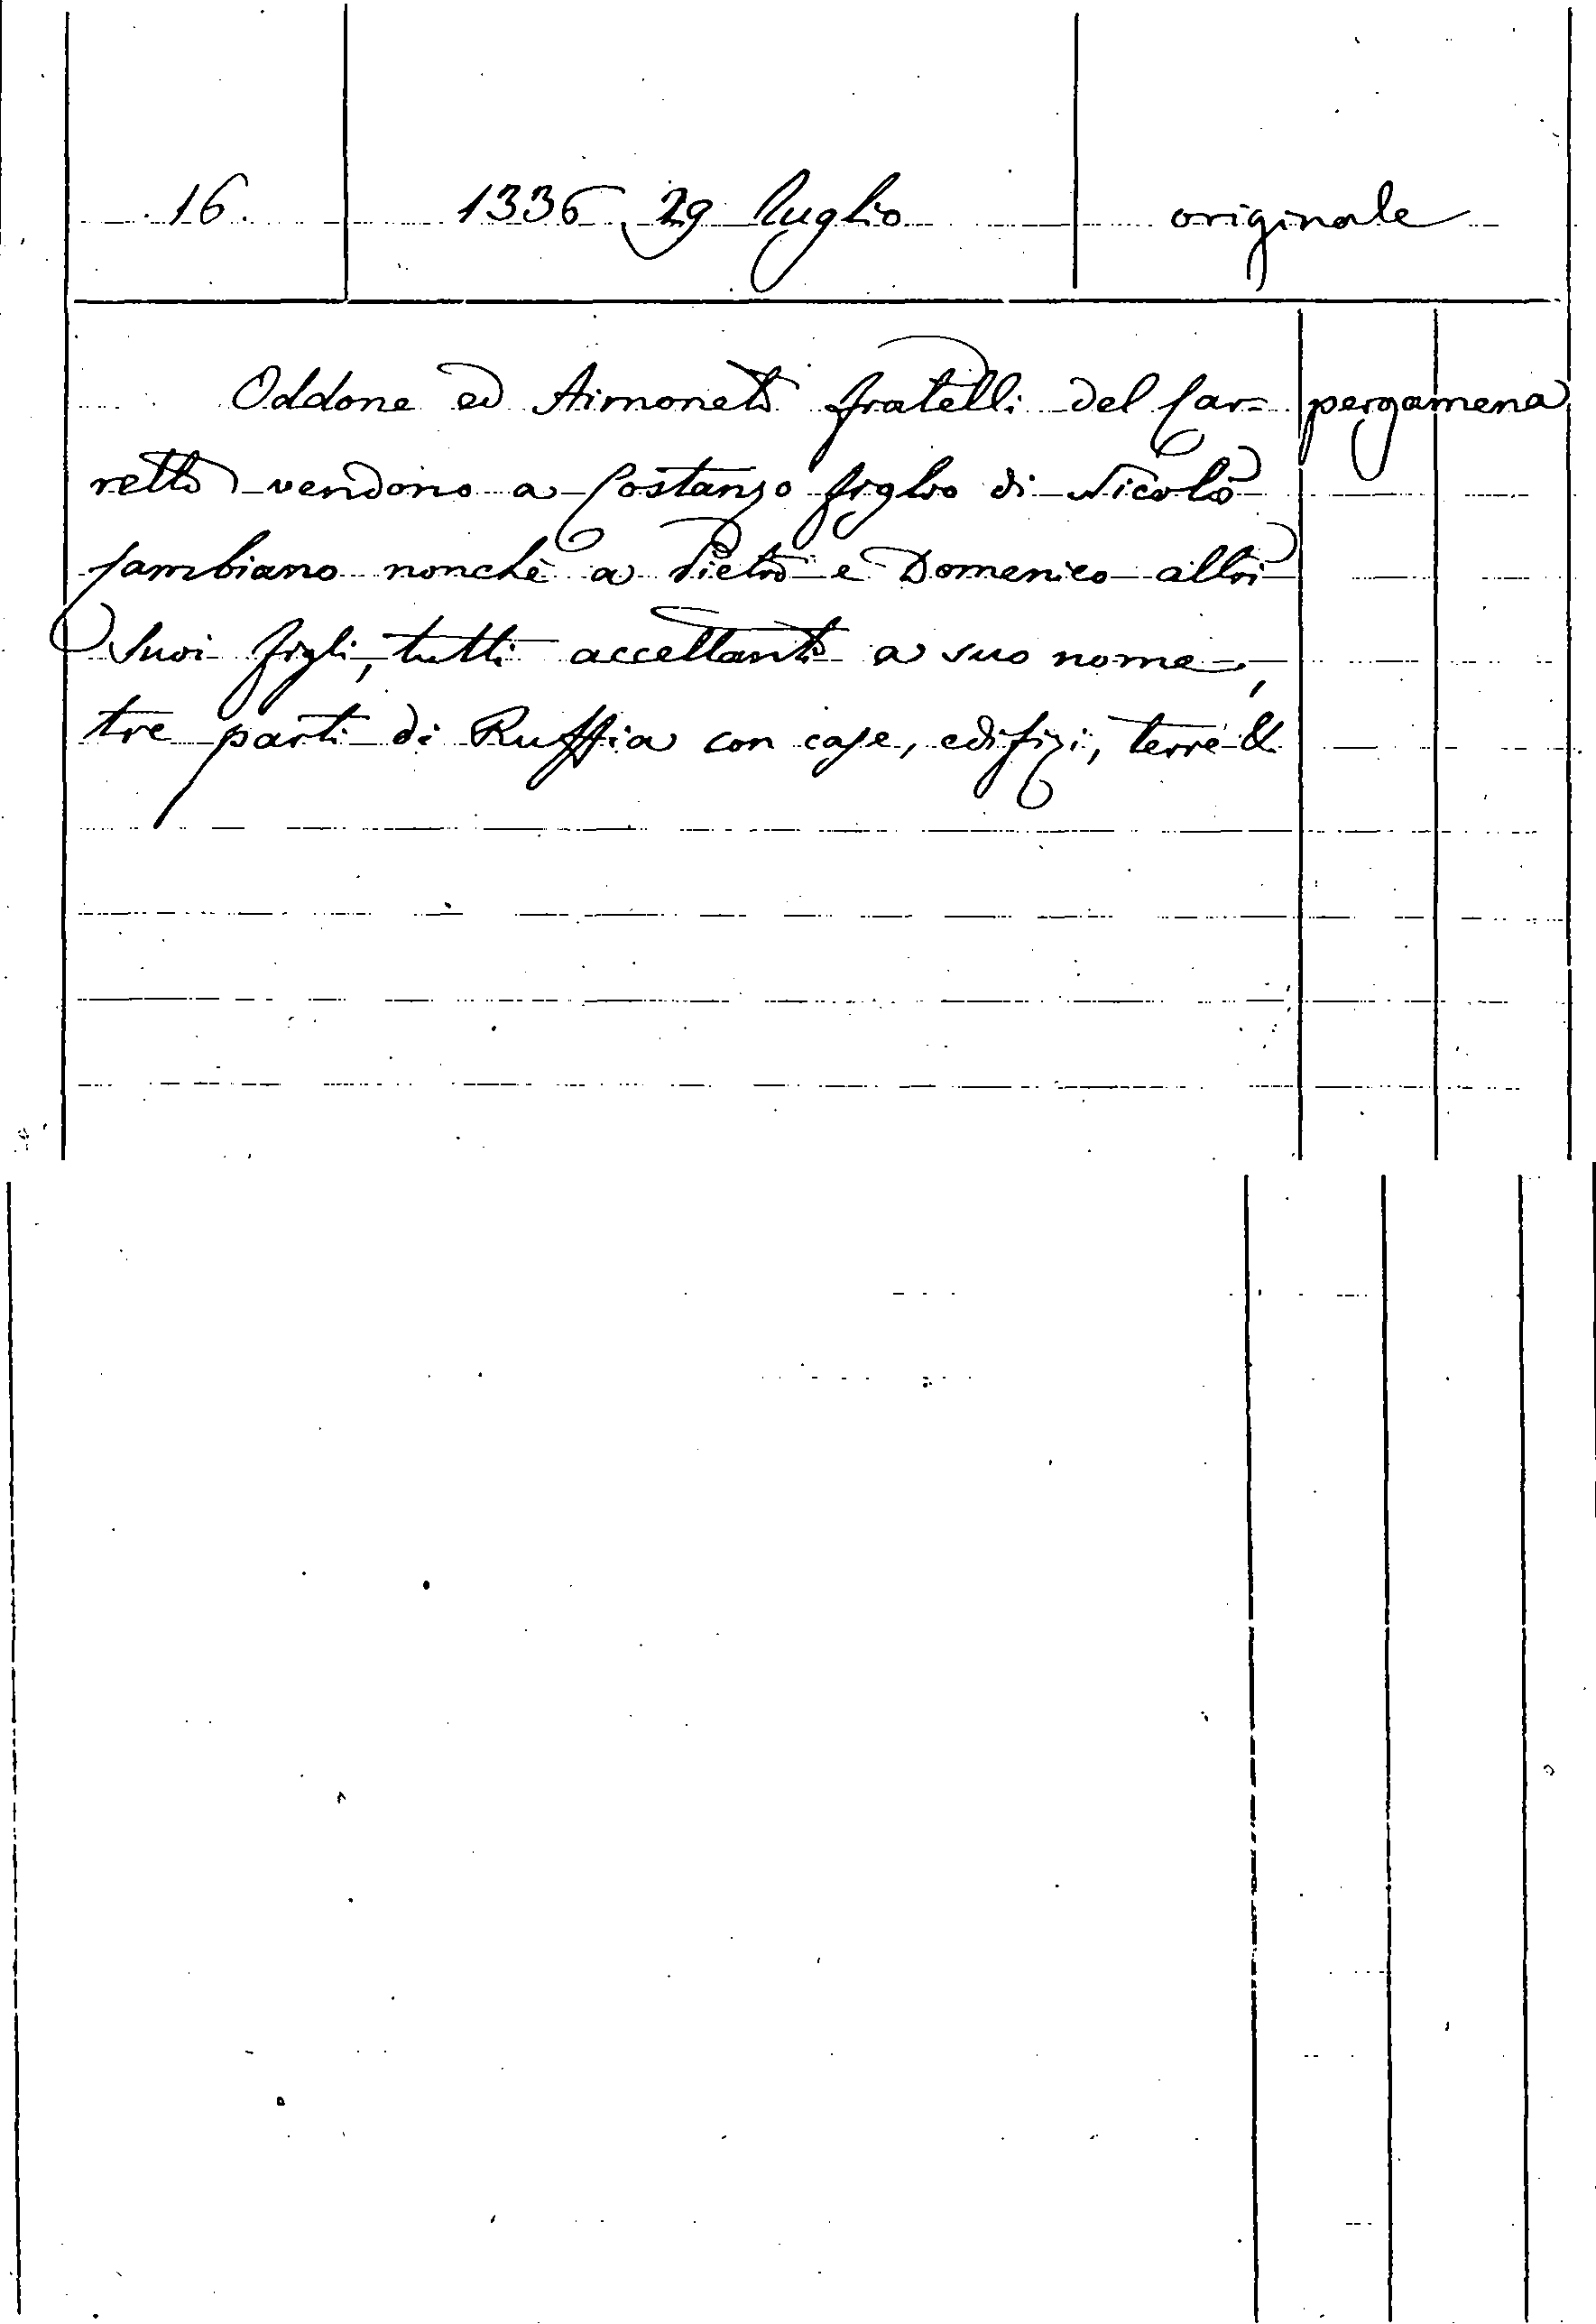 16. 1336, 29 luglio originale
Oddone ed Aimoneto fratelli del Car= pergamena
retto vendono a Costanzo figlio di Nicolò
Cambiano nonchè a Pietro e Domenico altri
suoi figli, tutti accettanti a suo nome,
tre parti di Ruffia con case, edifizi, terre &.